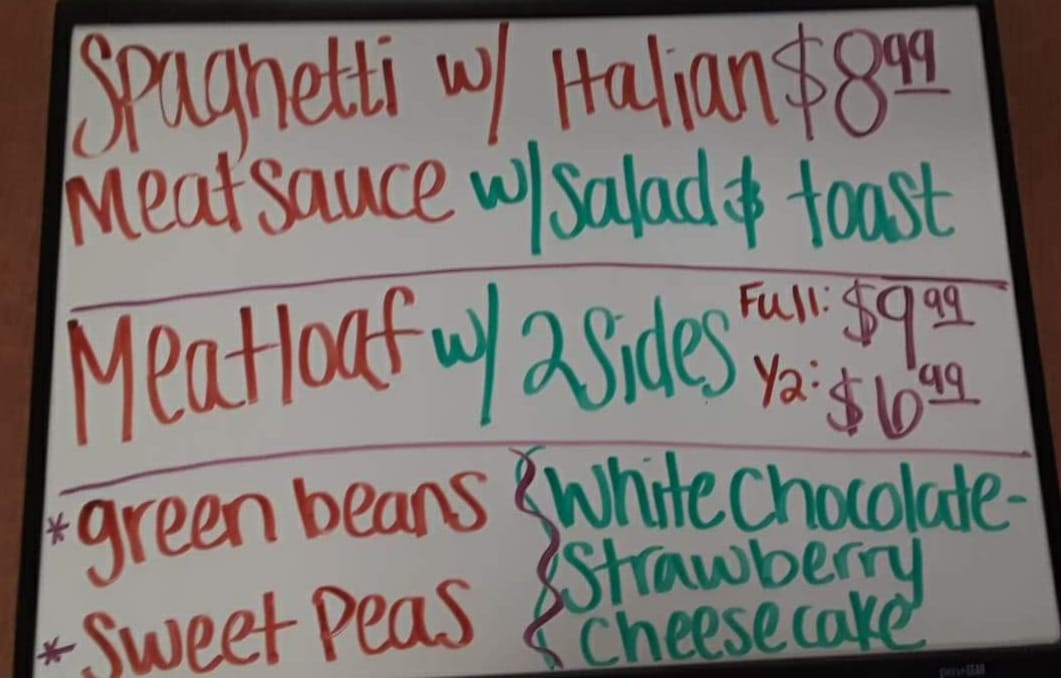 Spaghetti w/ Italian $8.99
Meat sauce w/ Salad & toast
Meatloaf w/ 2 Sides Full: $9.99
1/2: $6.99
* green beans
* Sweet Peas
White Chocolate-
Strawberry
Cheesecake